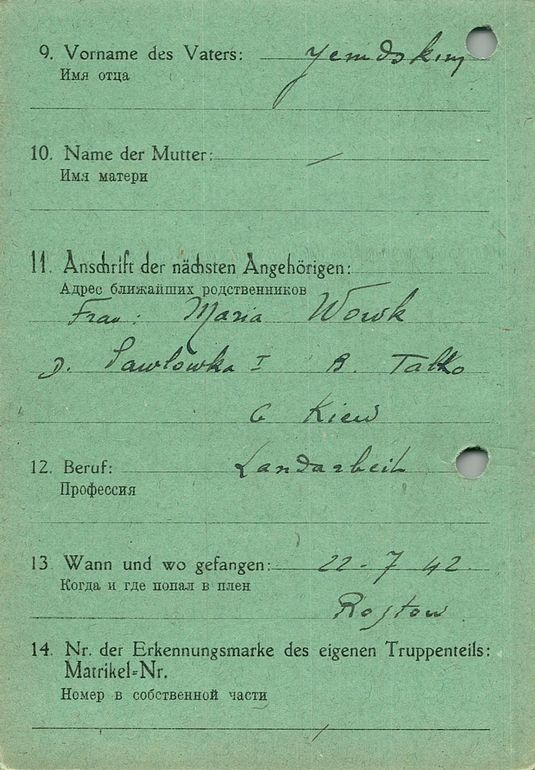 9. Vorname des Vaters:
Имя отца
10. Name der Mutter: —
Имя матери
11. Anschrift der nächsten Angehörigen:
Адрес ближайших родственников
Frau: Maria Wowk
D. Pawlowka I B. Talko
G Kiew
12. Beruf: Landarbeit
Профессия
13. Wann und wo gefangen: 22-7 42.
Когда и где попал в плен
Rostow
14. Nr. der Erkennungsmarke des eigenen Truppenteils:
Matrikel=Nr.
Номер в собственной части